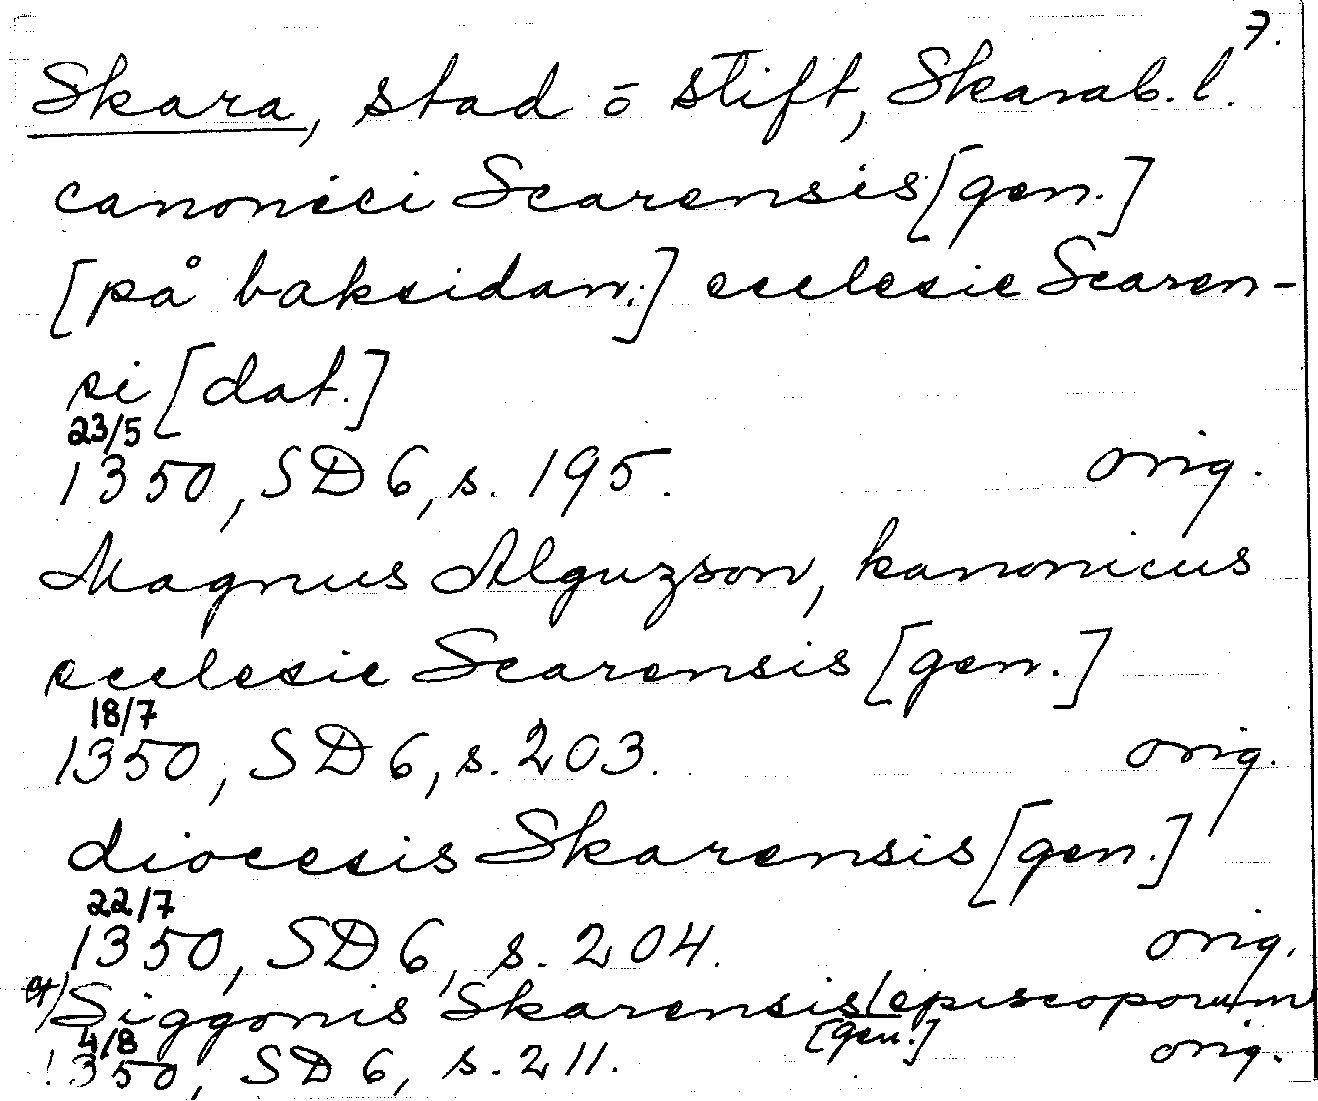 7.
Skara, stad o stift, Skarab. l.
canonici Scarensis [gen.]
[på baksidan:] ecclesie Scaren-
si [dat.]
23/5
1350, SD 6, s. 195. orig.
Magnus Alguzson, kanonicus
ecclesie Scarensis [gen.]
18/7
1350, SD 6, s. 203. orig.
diocesis Skarensis [gen.]
22/7
1350, SD 6, s. 204. orig.
et) Siggonis Skarensis / episcoporum
[gen.]
4/8
1350, SD 6, s. 211. orig.